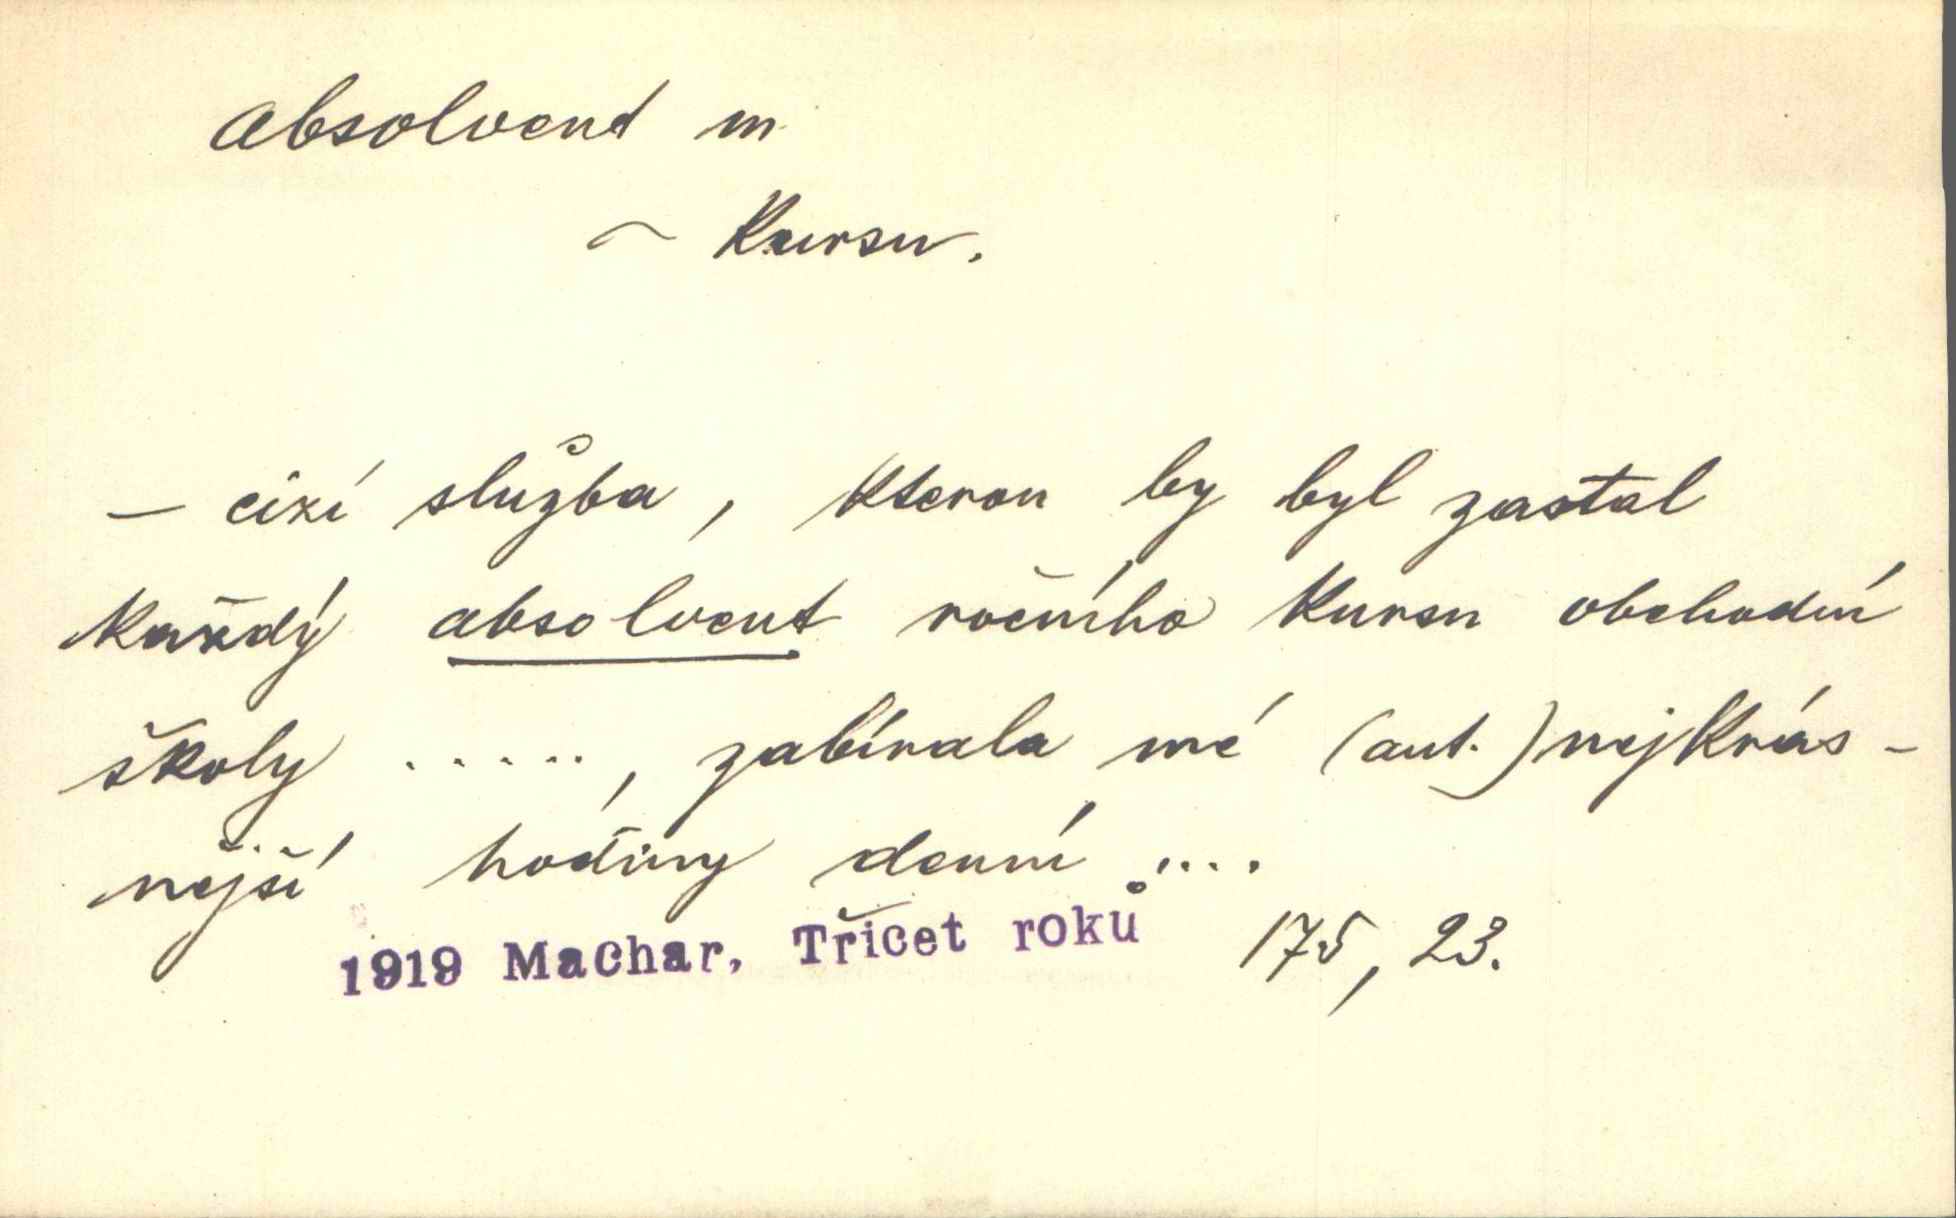 absolvent m.
~ kursu.
– cizí služba, kterou by byl zastal
každý absolvent ročního kursu obchodní
školy ....., zabírala mé (aut.) nejkrás-
nější hodiny denní ....
1919 Machar, Třicet roků 175, 23.